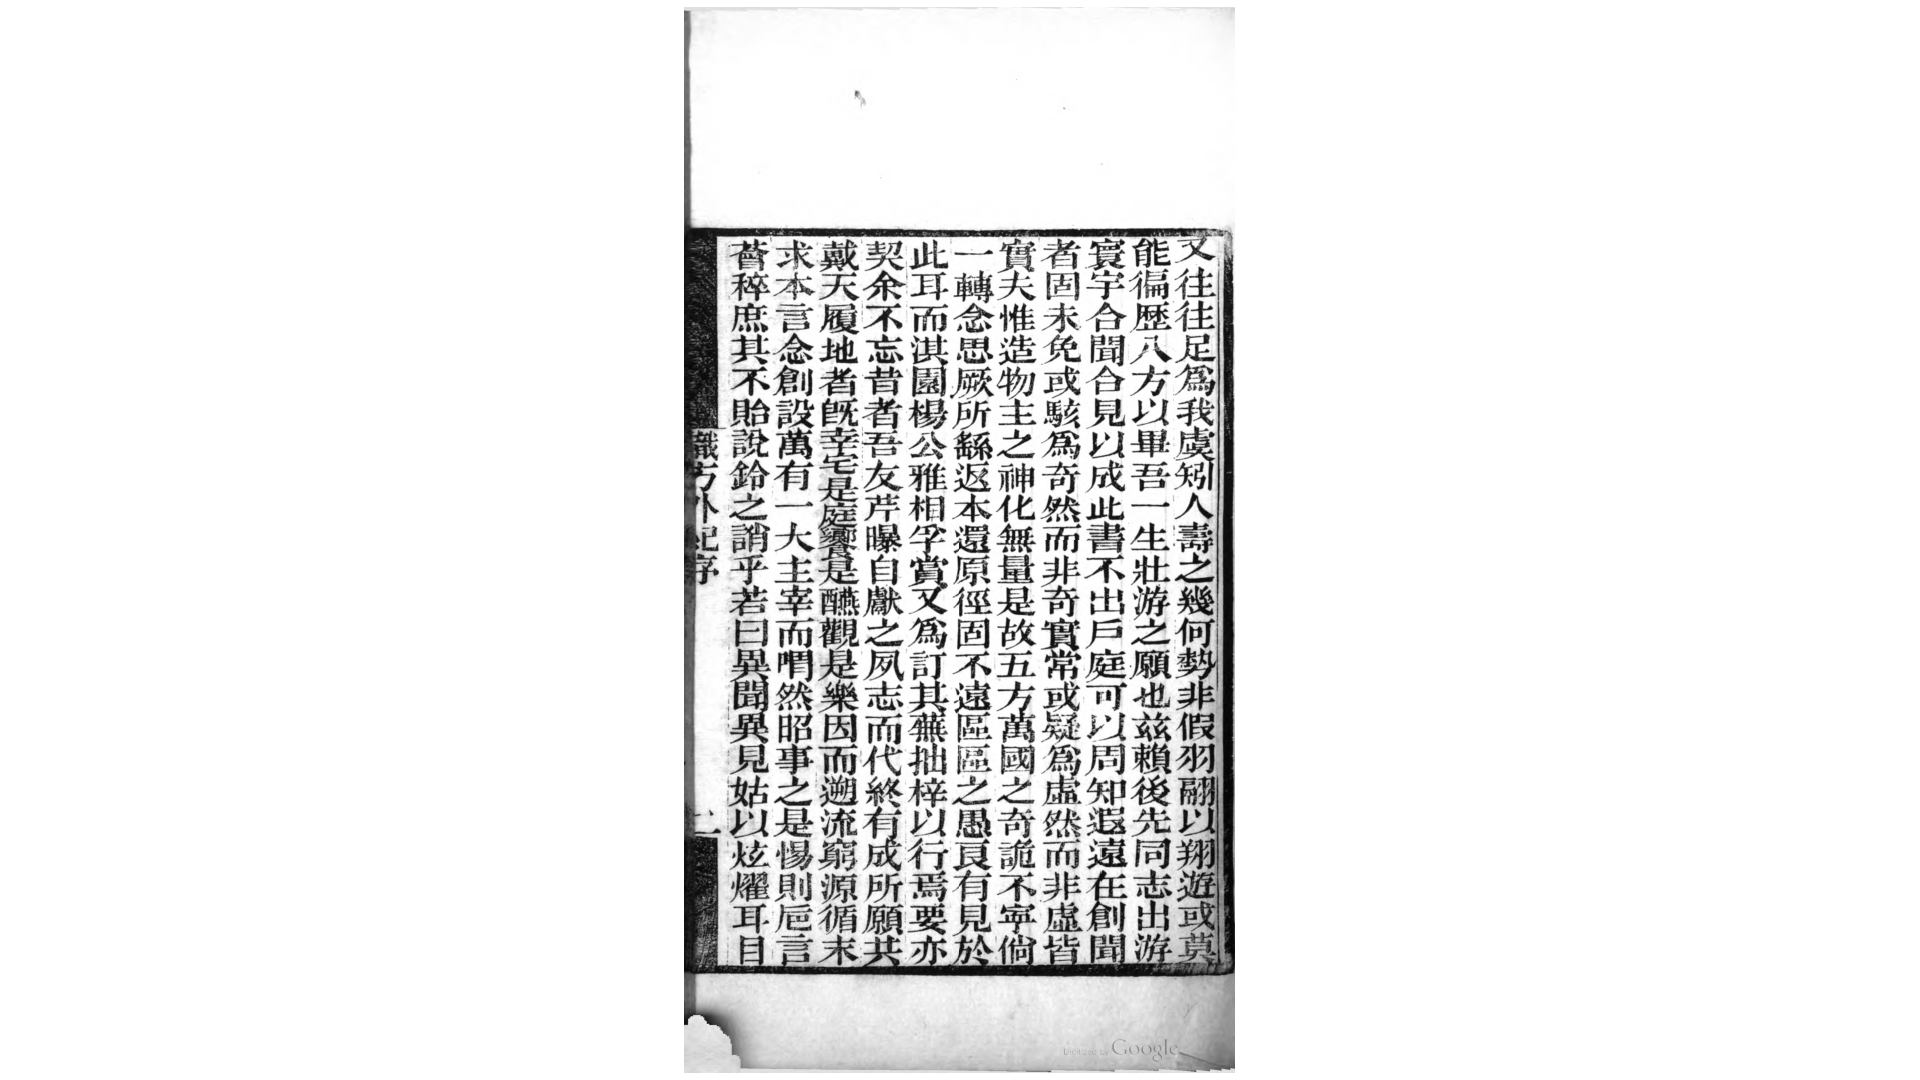 又往往足爲我虞矧人壽之幾何勢非假羽翮以翔遊或莫
能徧歷八方以畢吾一生壯游之願也兹賴後先同志出游
寰宇合聞合見以成此書不出戶庭可以周知遐遠在創聞
者固未免或駭爲奇然而非奇實常或疑爲虛然而非虛皆
實夫惟造物主之神化無量是故五方萬國之奇詭不寕倘
一轉念思厥所繇返本還原徑固不遠區區之愚良有見於
此耳而淇園楊公雅相孚賞又爲訂其蕪拙梓以行焉要亦
契余不忘昔者吾友芹曝自獻之夙志而代終有成所願共
戴天履地者旣幸宅是庭饗是醼觀是樂因而遡流窮源循末
求本言念創設萬有一大主宰而喟然昭事之是惕則巵言
薈稡庶其不貽說鈴之誚乎若曰異聞異見姑以炫燿耳目
職方外紀序
二
Digitized by Google